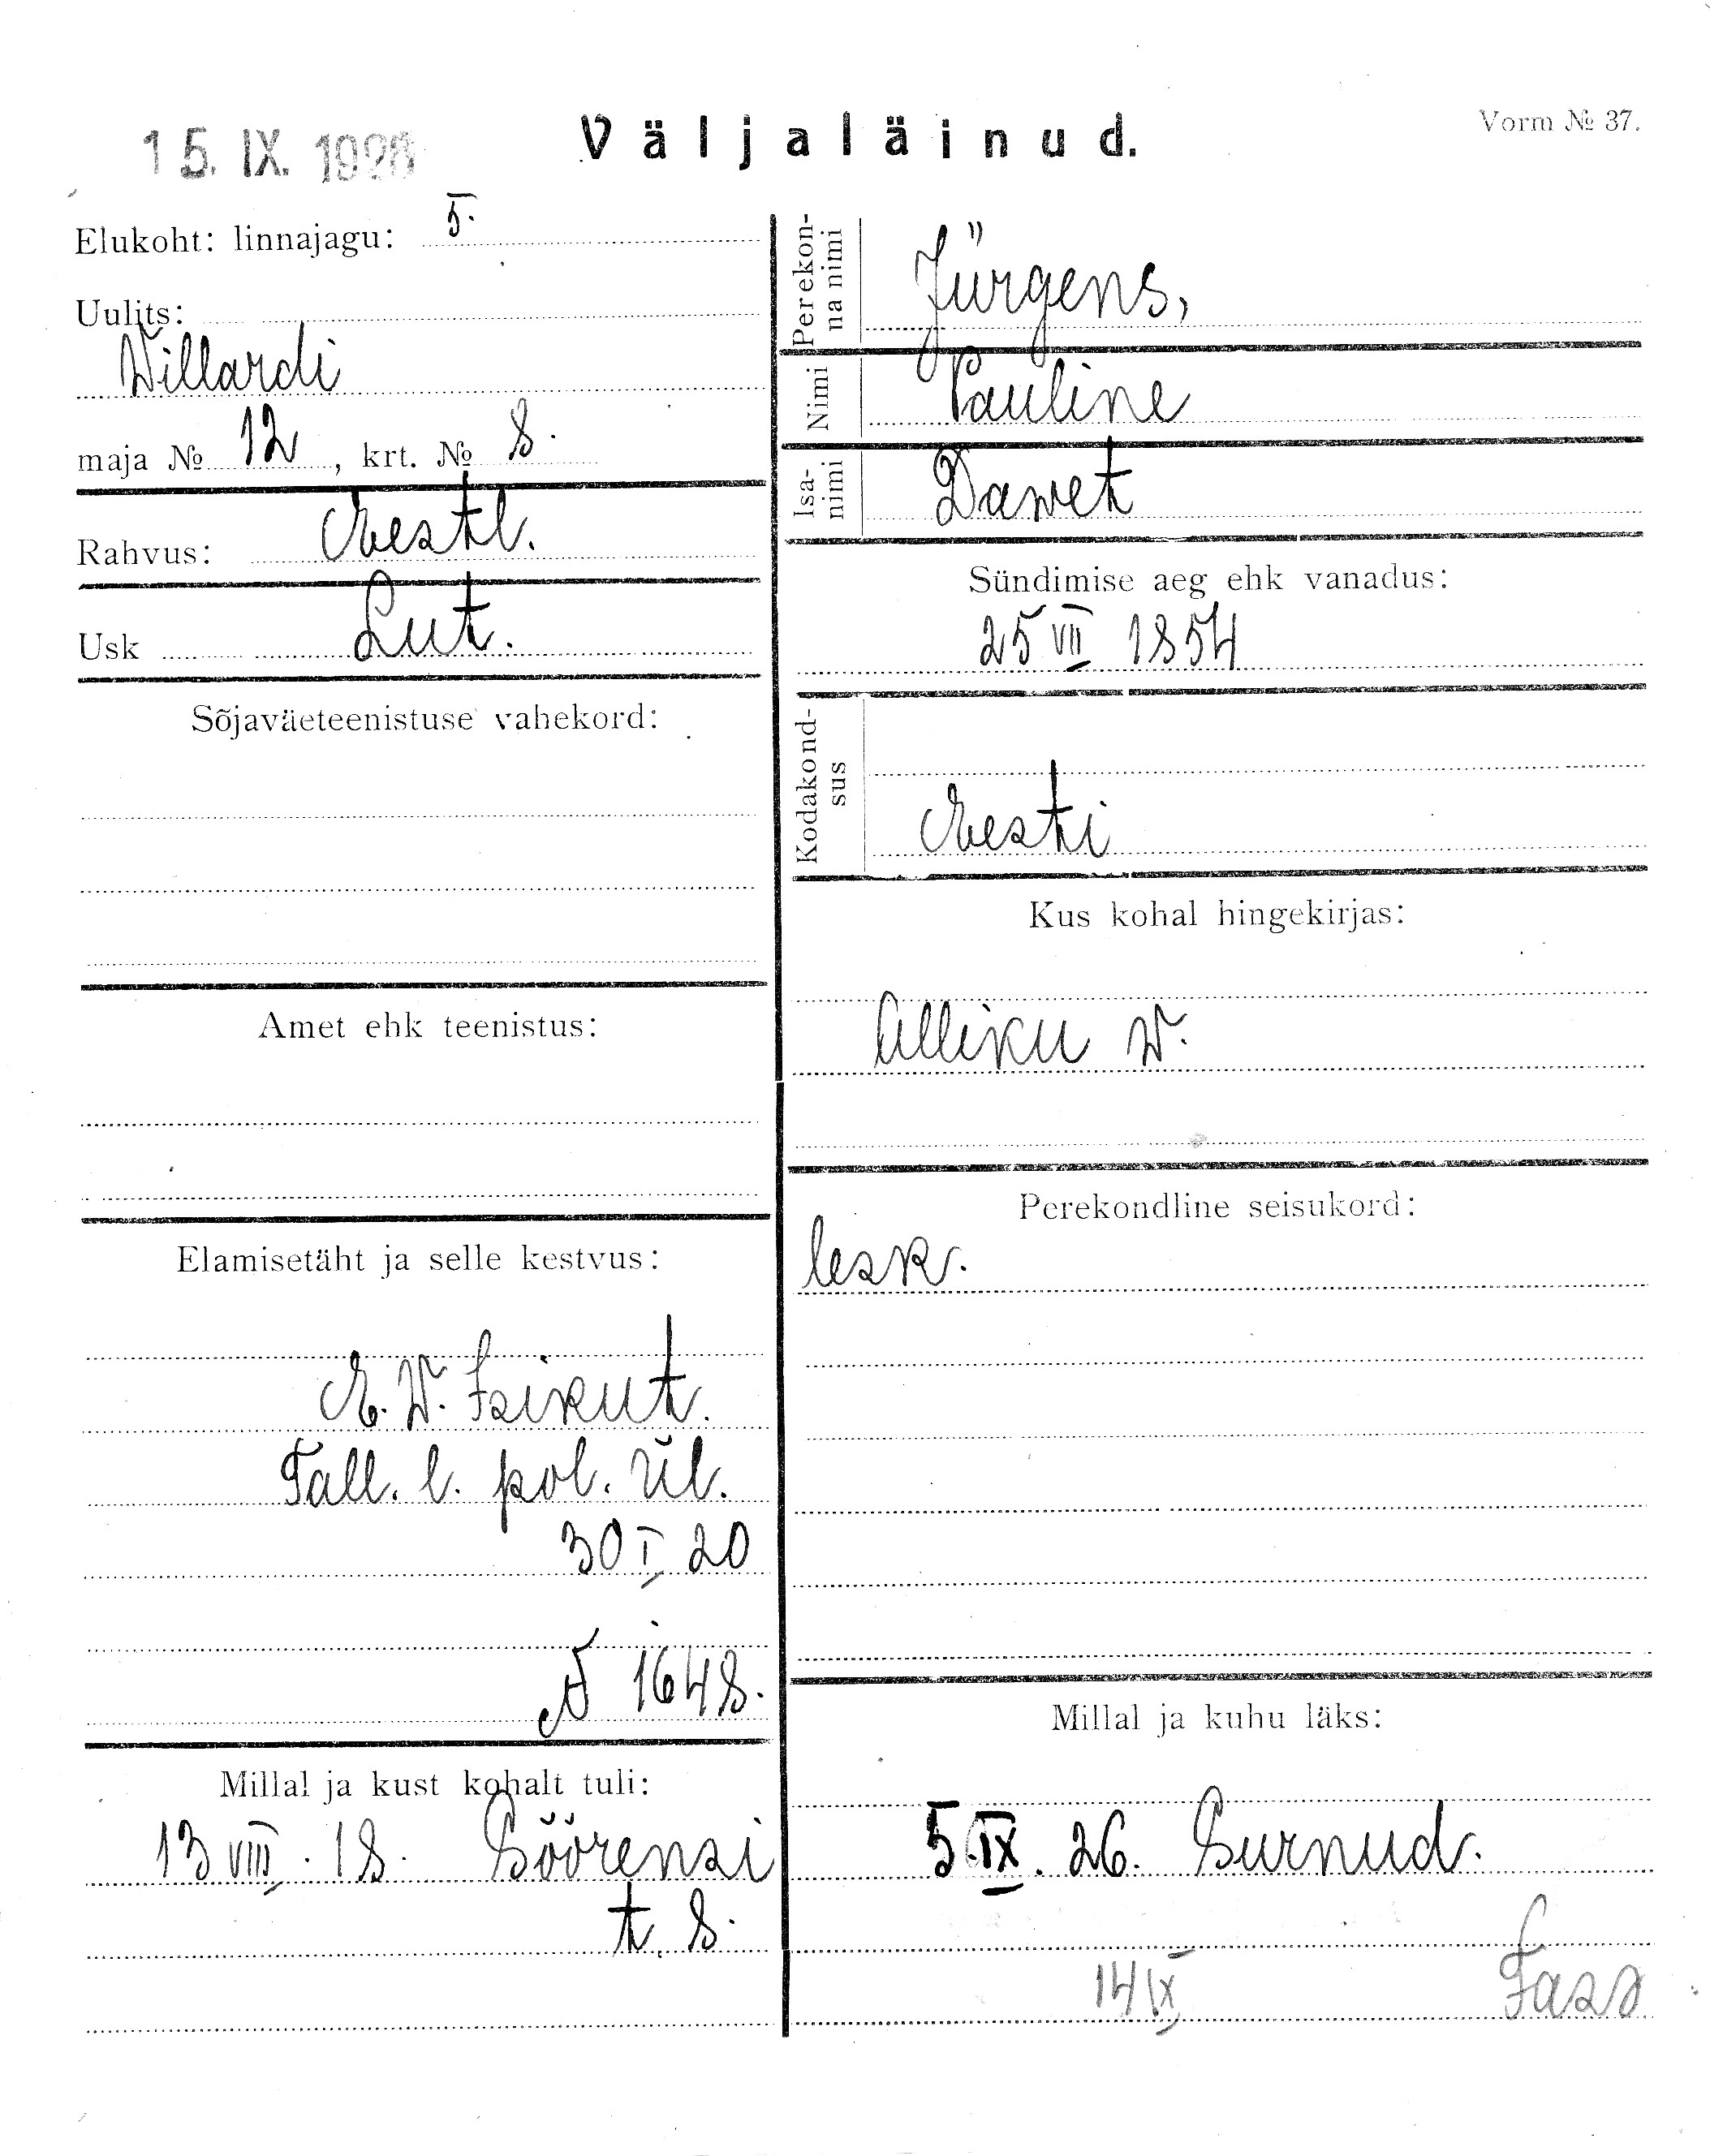 15. IX. 1926
Väljaläinud.
Vorm № 37.
Elukoht: linnajagu: 5.
Uulits:
Willardi
maja № 12, krt. № 8.
Rahvus: Eestl.
Usk Lut.
Sõjaväeteenistuse vahekord:
Amet ehk teenistus:
Elamisetäht ja selle kestvus:
E. W. Isikut.
Tall. l. pol. ül.
30 I 20
№ 1648.
Millal ja kust kohalt tuli:
13 VIII. 18. Söörensi
t. 8.
Perekonna nimi Jürgens,
Nimi Pauline
Isanimi Dawet
Sündimise aeg ehk vanadus:
25 VII 1854
Kodakondsus
Eesti
Kus kohal hingekirjas:
Alliku W.
Perekondline seisukord:
lesk.
Millal ja kuhu läks:
5 IX. 26. Surnud.
14 IX